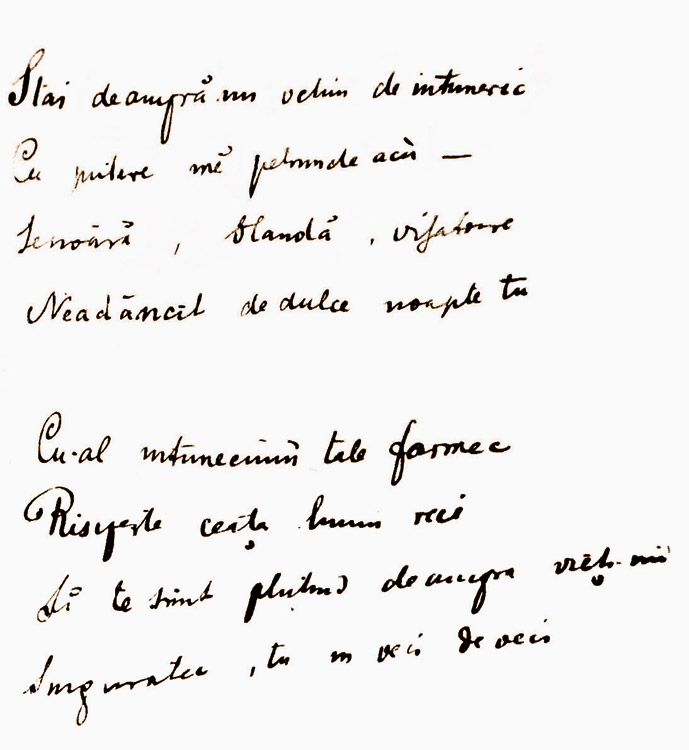 Stai deasupră mi ochiu de intuneric
Cu putere mĕ petrunde acù —
Serioasă, blandă, visătoare
Neadâncit de dulce noapte tu
Cu-al intunecimiĭ tale farmec
Risipește ceața lumii reci
Să te simt plutind deasupra viețiĭ-mi
Singuratec, tu in veci de veci